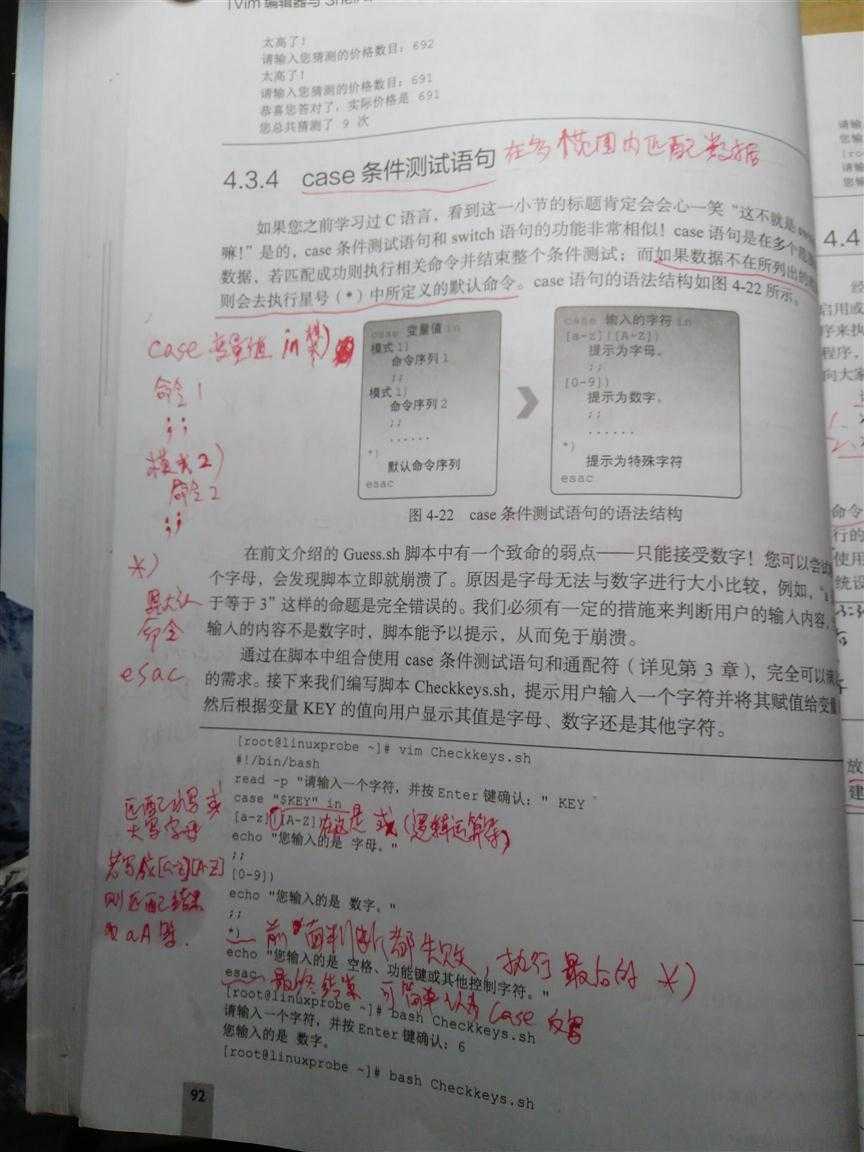 Vim 编辑器与 Shell
太高了！
请输入您猜测的价格数目：692
太高了！
请输入您猜测的价格数目：691
恭喜您答对了，实际价格是 691
您总共猜测了 9 次
4.3.4 case 条件测试语句
在多个范围内匹配数据
如果您之前学习过 C 语言，看到这一小节的标题肯定会会心一笑“这不就是
嘛！”是的，case 条件测试语句和 switch 语句的功能非常相似！case 语句是在多个范围
数据，若匹配成功则执行相关命令并结束整个条件测试；而如果数据不在所列出的
则会去执行星号（*）中所定义的默认命令。case 语句的语法结构如图 4-22 所示。
case 变量值 in 模式)
命令1
;;
模式2)
命令2
;;
*)
默认
命令
esac
case 变量值 in
模式 1)
命令序列 1
;;
模式 1)
命令序列 2
;;
......
*)
默认命令序列
esac
case 输入的字符 in
[a-z]|[A-Z])
提示为字母。
;;
[0-9])
提示为数字。
;;
......
*)
提示为特殊字符
esac
图 4-22 case 条件测试语句的语法结构
在前文介绍的 Guess.sh 脚本中有一个致命的弱点——只能接受数字！您可以尝试
个字母，会发现脚本立即就崩溃了。原因是字母无法与数字进行大小比较，例如，“
于等于 3”这样的命题是完全错误的。我们必须有一定的措施来判断用户的输入内容，
输入的内容不是数字时，脚本能予以提示，从而免于崩溃。
通过在脚本中组合使用 case 条件测试语句和通配符（详见第 3 章），完全可以满
的需求。接下来我们编写脚本 Checkkeys.sh，提示用户输入一个字符并将其赋值给变量
然后根据变量 KEY 的值向用户显示其值是字母、数字还是其他字符。
[root@linuxprobe ~]# vim Checkkeys.sh
#!/bin/bash
read -p "请输入一个字符，并按 Enter 键确认：" KEY
case "$KEY" in
[a-z]|[A-Z])
在这是 或 (逻辑运算符)
echo "您输入的是 字母。"
;;
[0-9])
echo "您输入的是 数字。"
;;
*)
前面判断都失败，执行最后的 *)
echo "您输入的是 空格、功能键或其他控制字符。"
esac
最终结束 可简单认为 case 反写
[root@linuxprobe ~]# bash Checkkeys.sh
请输入一个字符，并按 Enter 键确认：6
您输入的是 数字。
[root@linuxprobe ~]# bash Checkkeys.sh
匹配小写或
大写字母
若写成[a-z][A-Z]
则匹配结果
为 aA 等.
92
4.4